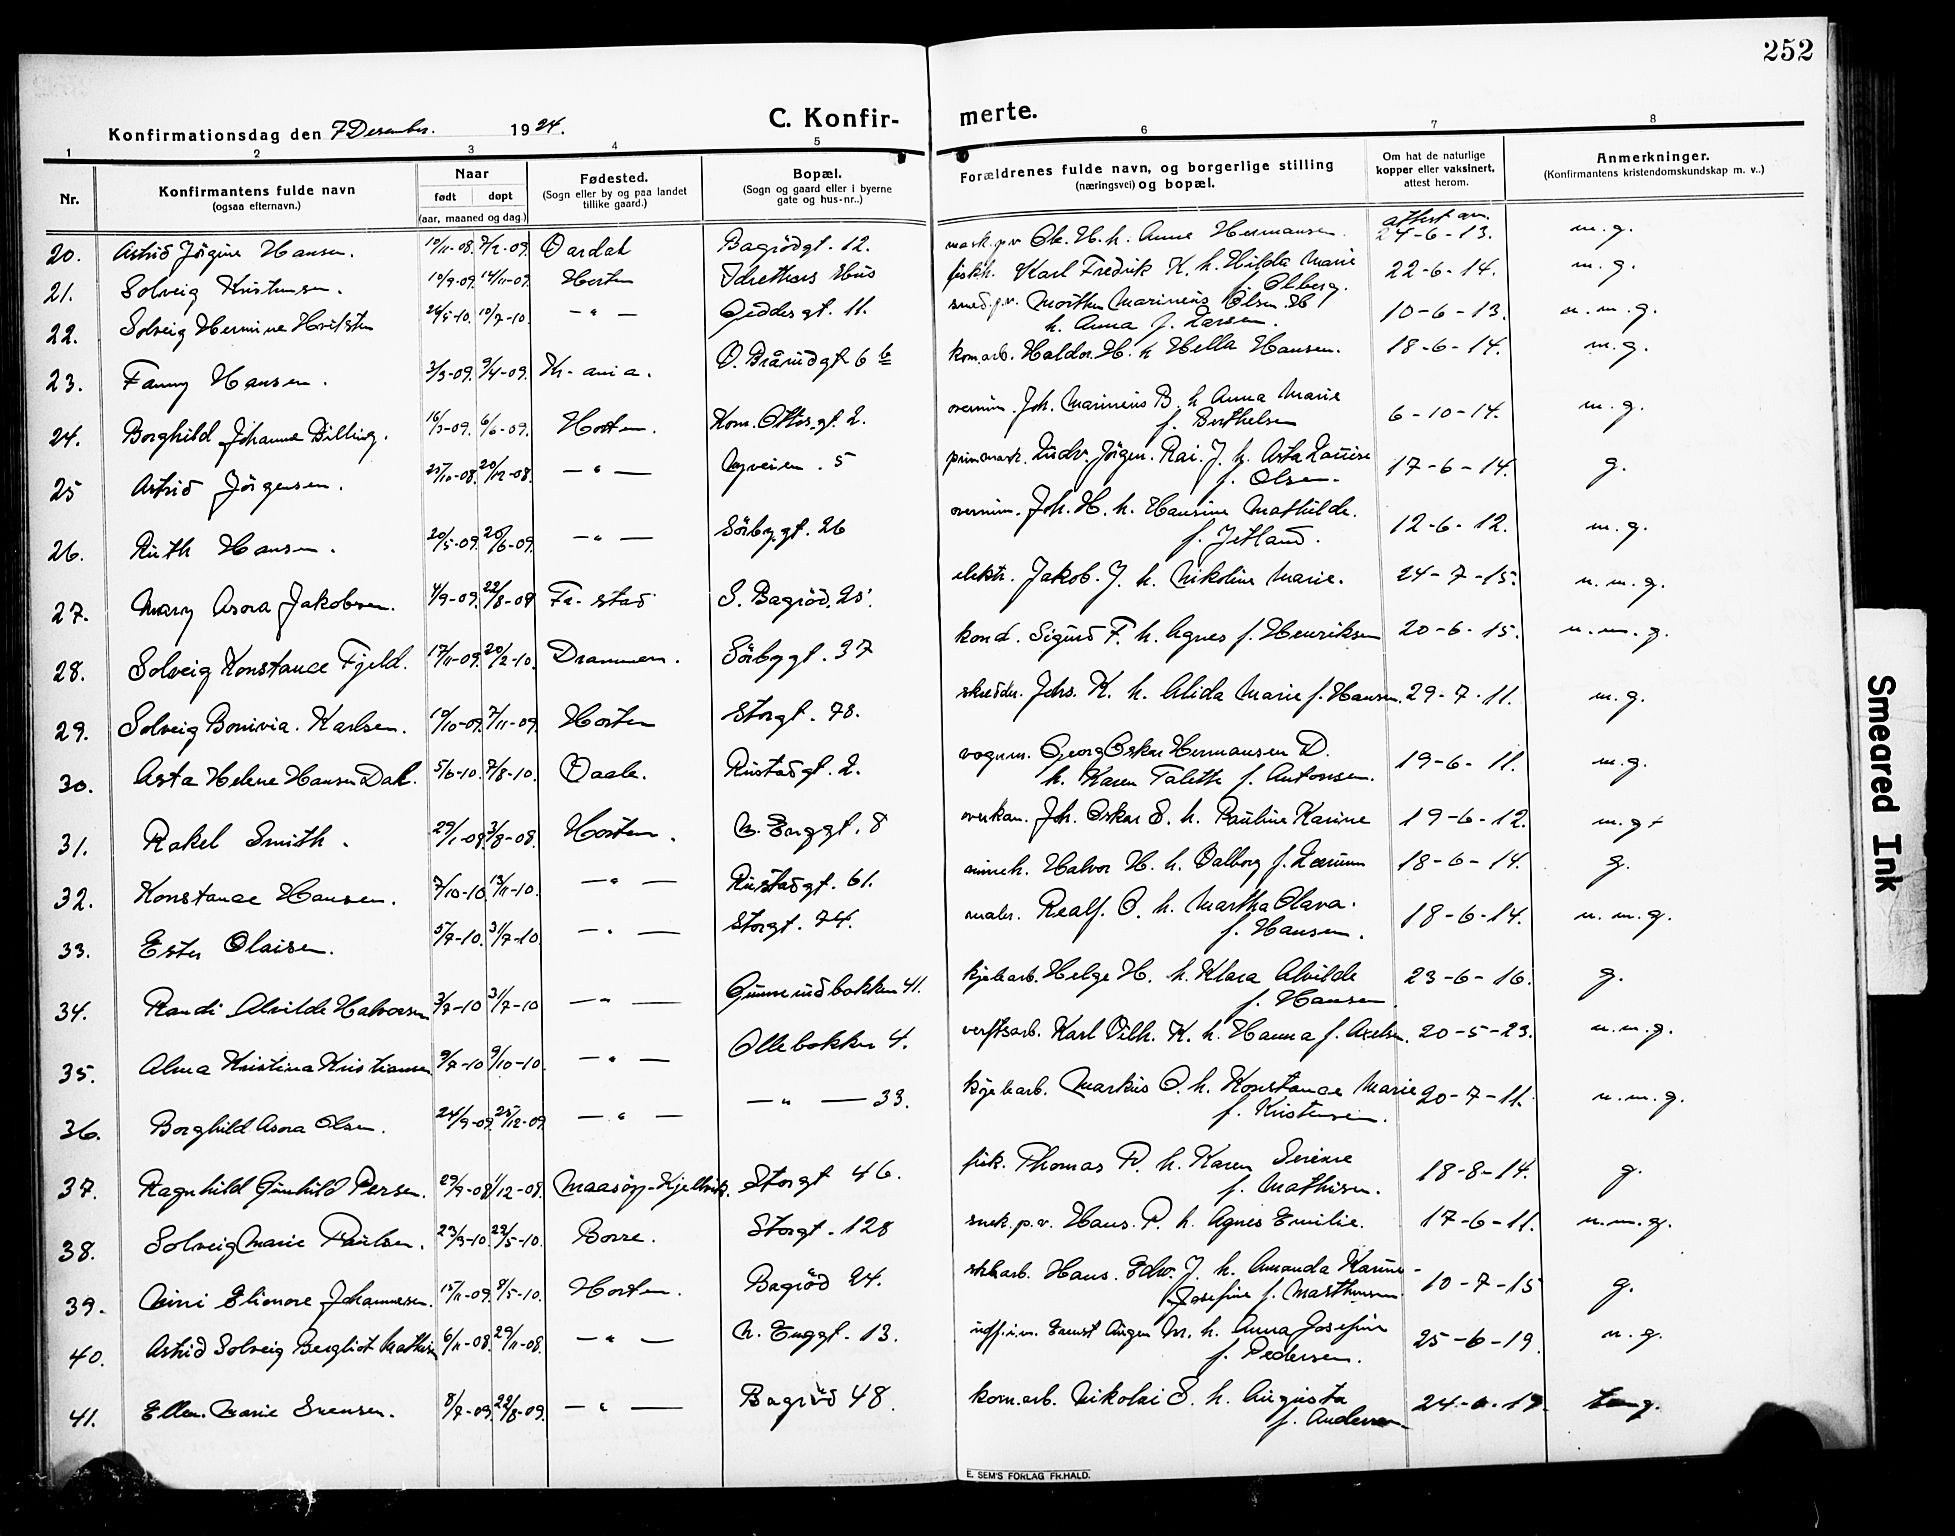 252
Konfirmationsdag den 7 Desember. 1924. C. Konfir- merte.
1 2 3 4 5 6 7 8
Nr.
Konfirmantens fulde navn
(ogsaa efternavn.)
Naar
født døpt
(aar, maaned og dag.)
Fødested.
(Sogn eller by og paa landet
tillike gaard.)
Bopæl.
(Sogn og gaard eller i byerne
gate og hus-nr..)
Forældrenes fulde navn, og borgerlige stilling
(næringsvei) og bopæl.
Om hat de naturlige
kopper eller vaksinert,
attest herom.
Anmerkninger.
(Konfirmantens kristendomskundskap m. v..)
attest av.
20. Astrid Jørgine Hansen. 19/11-08. 7/12-09. Vardal Bagrödgt. 12. mask. p.v. Ole. H. h. Anne Hermansen. 24-6-13. m. g.
21. Solveig Kristensen. 10/9-09. 14/11-09. Horten Idrettens Hus fiskh. Karl Fredrik K. h. Hilda Marie 22-6-14. m. g.
f. Olberg.
22. Solveig Hermine Hvitsten 26/5-10. 10/7-10. — " — Geddesgt. 11. smed. p.v. Morthen Marinius Olsen H 10-6-13. n. m. g.
h. Anna f. Larsen.
23. Fanny Hansen. 3/3-09. 9/4-09. Kr-ania. O. Brårudgt 6 b kom.arb. Haldor. H. h Hella Hansen. 18-6-14. m. g.
24. Borghild Johanne Billing. 16/3-09. 6/6-09. Horten. Kom. Ottos.gt. 2. overmin. Joh. Marinius B. h Anna Marie 6-10-14. m. g.
f. Berthelsen
25 Astrid Jörgensen. 25/10-08. 20/12-08. — " — Nyveien. 5 prim.mask. Ludv. Jörgen. Rai. J. h. Asta Louise 17-6-14. g.
f. Olsen.
26. Ruth Hansen. 20/5-09. 20/6-09. — " — Sörbygt. 26 overmin. Joh. H. h. Hansine Mathilde. 12-6-12. m. g.
f. Jetland.
27. Mary Asora Jakobsen. 4/9-09. 22/8-09 Fr-stad S. Bagröd. 25. elektr. Jakob. J. h. Nikoline Marie. 24-7-15. n. m. g.
28. Solveig Konstance Fjeld. 17/11-09. 20/2-10. Drammen. Sörbygt. 37 kond. Sigurd F. h. Agnes f. Henriksen 20-6-15. n. m. g.
29. Solveig Bonivia. Karlsen. 19/10-09. 7/11-09. Horten Storgt. 78. skrædder. Johs. K. h. Alida Marie f. Hansen. 29-7-11. m. g.
30. Asta Helene Hansen Dal. 5/6-10. 7/8-10. Vaale. Rustadgt. 2. vognm. Georg Oskar Hermansen D. 19-6-11. m. g.
h. Karen Talette f. Antonsen.
31. Rakel Smith. 29/1-08. 3/8-08. Horten. N. Enggt. 8 overkan. Joh. Oskar S. h. Pauline Karine 19-6-12. m. g+
32. Konstance Hansen. 7/10-10. 13/11-10. — " — Rustadgt. 61. mineh. Halvor H. h. Valborg f. Lærum 18-6-14. g.
33. Ester Olaisen. 5/7-10. 31/7-10. — " — Storgt. 74. maler. Realf. O. h. Martha Olava. 18-6-14. n. m. g.
f. Hansen.
34. Randi Alvilde Halvorsen 3/7-10 31/7-10 — " — Gunnerudbakken 41. kjelearb. Helge H. h. Klara Alvilde 23-6-16. g.
f. Hansen
35. Alma Kristina Kristiansen 9/7-10 9/10-10. — " — Ollebakken 4. verftsarb. Karl Vilh. K. h. Hanna f. Axelsen. 20-5-23. n. m. g.
36. Borghild Asora Olsen. 24/9-09. 25/12-09. — " — — " — 33. kjelearb. Markus O. h. Konstance Marie 20-7-11. n. m. g.
f. Kristensen.
37. Ragnhild Gunhild Persen. 29/9-08 1/12-08. Maasöy-Kjellvik. Storgt 46. fisk. Thomas P. h. Karen Serine 18-8-14. g.
f. Mathisen.
38. Solveig Marie Paulsen. 23/3-10. 22/5-10. Borre. Storgt. 128 snek. p.v. Hans. P. h. Agnes Emilie. 17-6-11. n. m. g.
39. Aini Elionore Johannesen. 15/11-09. 8/5-10. Horten. Bagröd 24. skibarb. Hans. Edw. J. h. Amanda Karine- 10-7-15 g.
Josefine f. Marthinsen.
40. Astrid Solveig Bergliot Mathisen 6/11-08. 29/11-08. — " — N. Enggt. 13. Ernst Augen M. h. Anna Josefine 25-6-19. n. g.
f. Pedersen.
41. Ellen. Marie Svensen. 8/7-09. 22/8-09. — " — Bagröd 48. kom.arb. Nikolai S. h. Augusta 24- -19. g.
f. Andersen
E. SEM'S FORLAG FR.HALD.
Smeared Ink